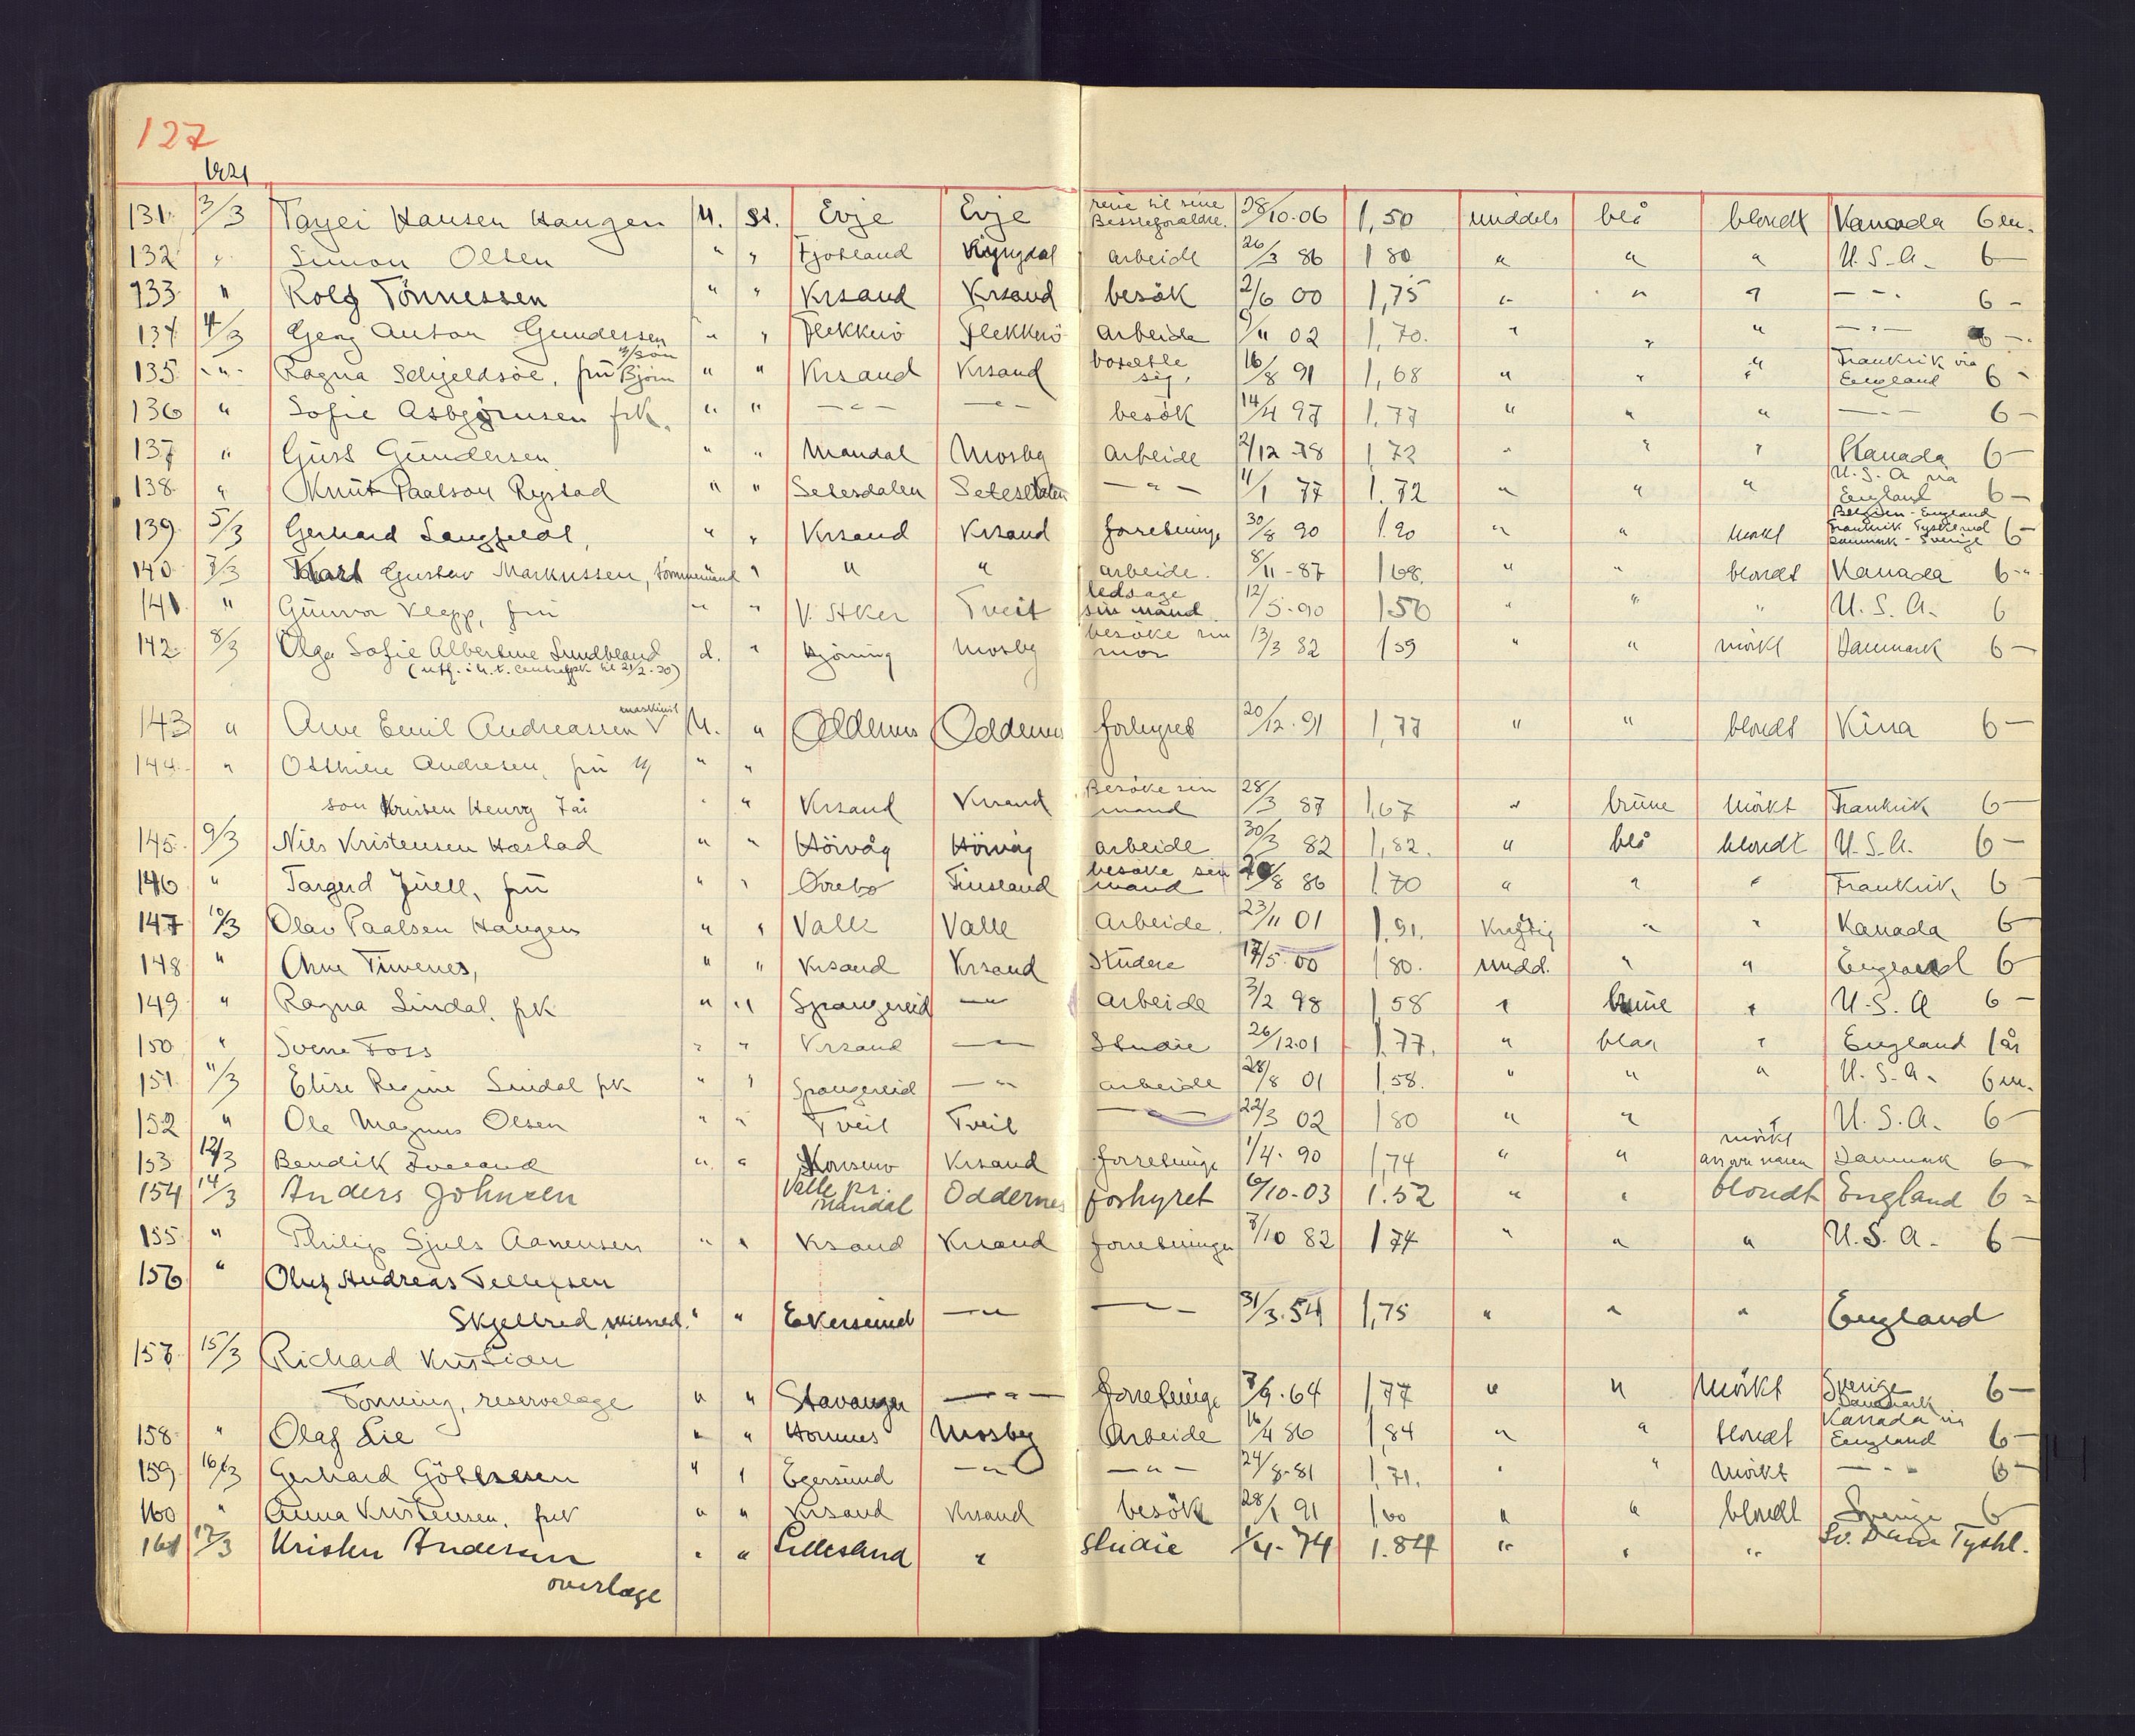 127
1921
131. 3/3 Tarjei Hansen Haugen N. st. Evje Evje reise til sine Besteforældre. 28/10-06 1,50 middels blå blondt Kanada 6 m.
132 " Simon Olsen " " Fjotland Kyrkjdal arbeide 26/3 86 1 80 " " " U.S.A. 6 —
133 " Rolf Tönnessen " " Krsand Krsand besök 2/6 00 1,75 " " " — " — 6 —
134 4/3 Georg Anton Gundersen " " Flekkerö Flekkerö arbeide 9/11 02 1,70. " " " — " — 6 —
135 — " — Ragna Schjeldsöe, frü m/sön Björn " " Krsand Krsand bosætte sig, 16/8 91 1,68 " " " Frankrik via England 6 —
136 " Sofie Asbjörnsen frk. " " — " — — " — besök 14/4 97 1,77 " " " — " — 6 —
137 " Güst Gündersen " " Mandal Mosby arbeide 2/12-78 1 72 " " " Kanada 6 —
138 " Knüt Paalson Rystad " " Setesdalen Setesdalen — " — 11/1 77 1.72 " " " U.S.A via England 6 —
139 5/3 Gerhard Langfeldt, " " Krsand Krsand forretninger 30/8 90 1.90 " " mörkt Belgien - England Frankrik Tyskland Danmark - Sverige 6 —
140 7/3 Karl Gustav Markussen, tömmermand " " " arbeide. 8/11-87 1 68. " " blondt Kanada 6 — "
141 " Günvor Klepp, frü " " V. Aker Tveit ledsage sin mand 12/5-90 1 50 " " " U.S.A. 6
142 8/3 Olga Sofie Albertine Lundbland d. " Hjöring Mosby besöke sin mor 13/3 82 1 59 " " mörkt Danmark 6 —
143 " Arne Emil Andreassen maskinist N. " Oddernes Oddernes forhyret 20/12-91 1,77 " " blondt Kina 6 —
144 " Otthilie Andresen, frü m/ " "
son Kristen Henry 7 år " " Krsand Krsand Besöke sin mand 28/3 87 1,67 " brüne mörkt Frankrik 6 —
145 9/3 Nils Kristensen Hæstad " " Hörvåg Hörvåg arbeide 30/3 82 1,82. " blå blondt U.S.A. 6 —
146 " Targerd Jüell, frü " " Övrebö Finsland besöke sin mand /8 86 1.70 " " " Frankrik 6 —
147 10/3 Olav Paalsen Haugen " " Valle Valle Arbeide. 23/11 01 1.91. Kraftig " " Kanada 6 —
148 " Arne Timenes, " " Krsand Krsand Stüdere 17/5-00 1 80. midd. " " England 6
149 " Ragna Lindal, frk " " Spangereid — " arbeide 3/2 98 1,58 " brüne " U.S.A 6 —
150 " Sverre Foss " " Krsand — " Studie 26/12-01 1.77. " blaa " England 1 år
151 11/3 Elise Regine Lindal frk " " Spangereid — " arbeide 28/8 01 1,58. " " " U.S.A. 6 m.
152 " Ole Magnus Olsen " " Tveit Tveit — " — 22/3 02 1 80 " " " U.S.A. 6 —
153 12/3 Bendik Iveland " " Konsmo Krsand forretninger 1/4-90 1,74 " " mörkt Danmark 6 —
154 14/3 Anders Johnsen Valle pr. Mandal Oddernes forhyret 6/10-03 1.52 " " blondt England 6 =
155 " Philip Sjuls Aanensen " " Krsand Krsand forretninger 7/10 82 1 74 " " " U.S.A. 6 —
156 " Oluf Andreas Tellefsen
Skjelbred " " Ekersünd — " — " — 31/3.54 1,75 " " " England
157. 15/3 Richard Kristian
Fonning, reservelæge " " Stavanger — " — forretninger 7/9-64 1,77 " " Mörkt Sverige Danmark 6 —
158 " Olaf Lie " " Hommes Mosby Arbeide 16/4 86 1,84 " " blondt Kanada via England 6 —
159 16/3 Gerhard Göttssen " " Egersünd — " — " — 24/8-81 1,71. " " Mörkt — " — 6 —
160 " Anna Kristensen, frk " " Krsand Krsand besök 28/1 91 1,60 " " blondt Sverige 6
161 17/3 Kristen Andersen " " Lillesand " Studie 1/4-74 1.84 " " " Sv. Dan Tyskl.
overlæge